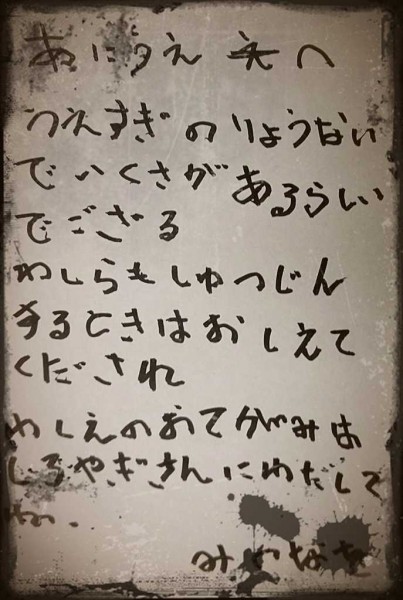 あにうえ へ
うえすぎのりょうない
でいくさがあるらしい
でござる
わしらもしゅつじん
するときはおしえて
くだされ
わしえのおてがみは
しろやぎさんにわたして
ね.